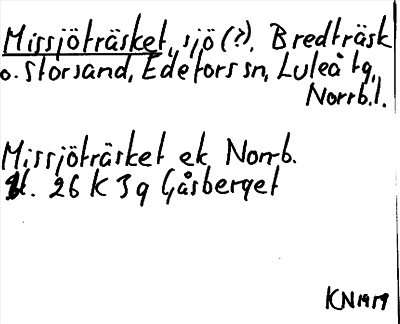 Missjöträsket, sjö (?), Bredträsk
o. Storsand, Edefors sn, Luleå tg,
Norrb.l.
Missjöträsket ek Norrb.
bl. 26 K 3 g Gåsberget
KN 1919